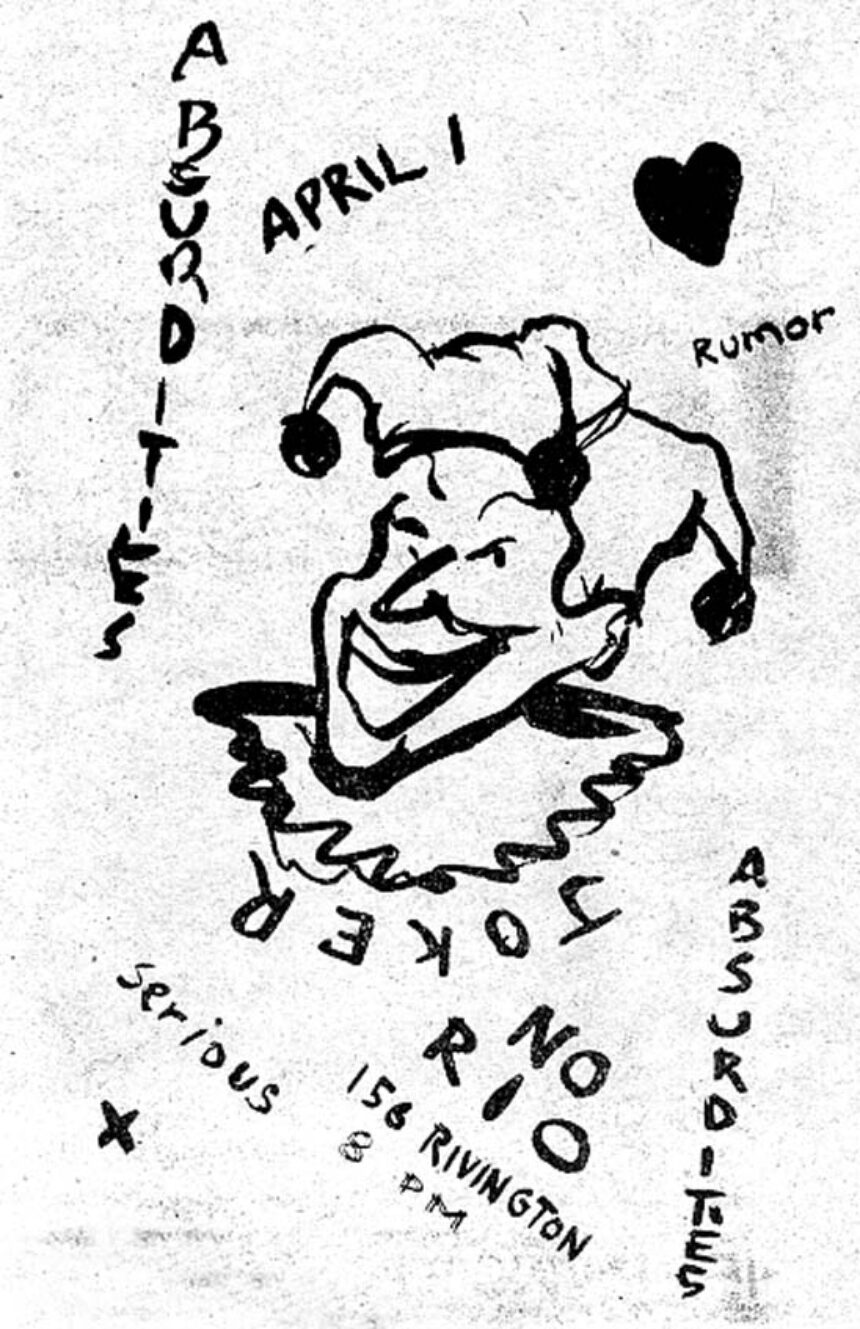 ABSURDITIES
APRIL 1
Rumor
JOKER
serious
X
NO
RIO
156 RIVINGTON
8 PM
ABSURDITIES